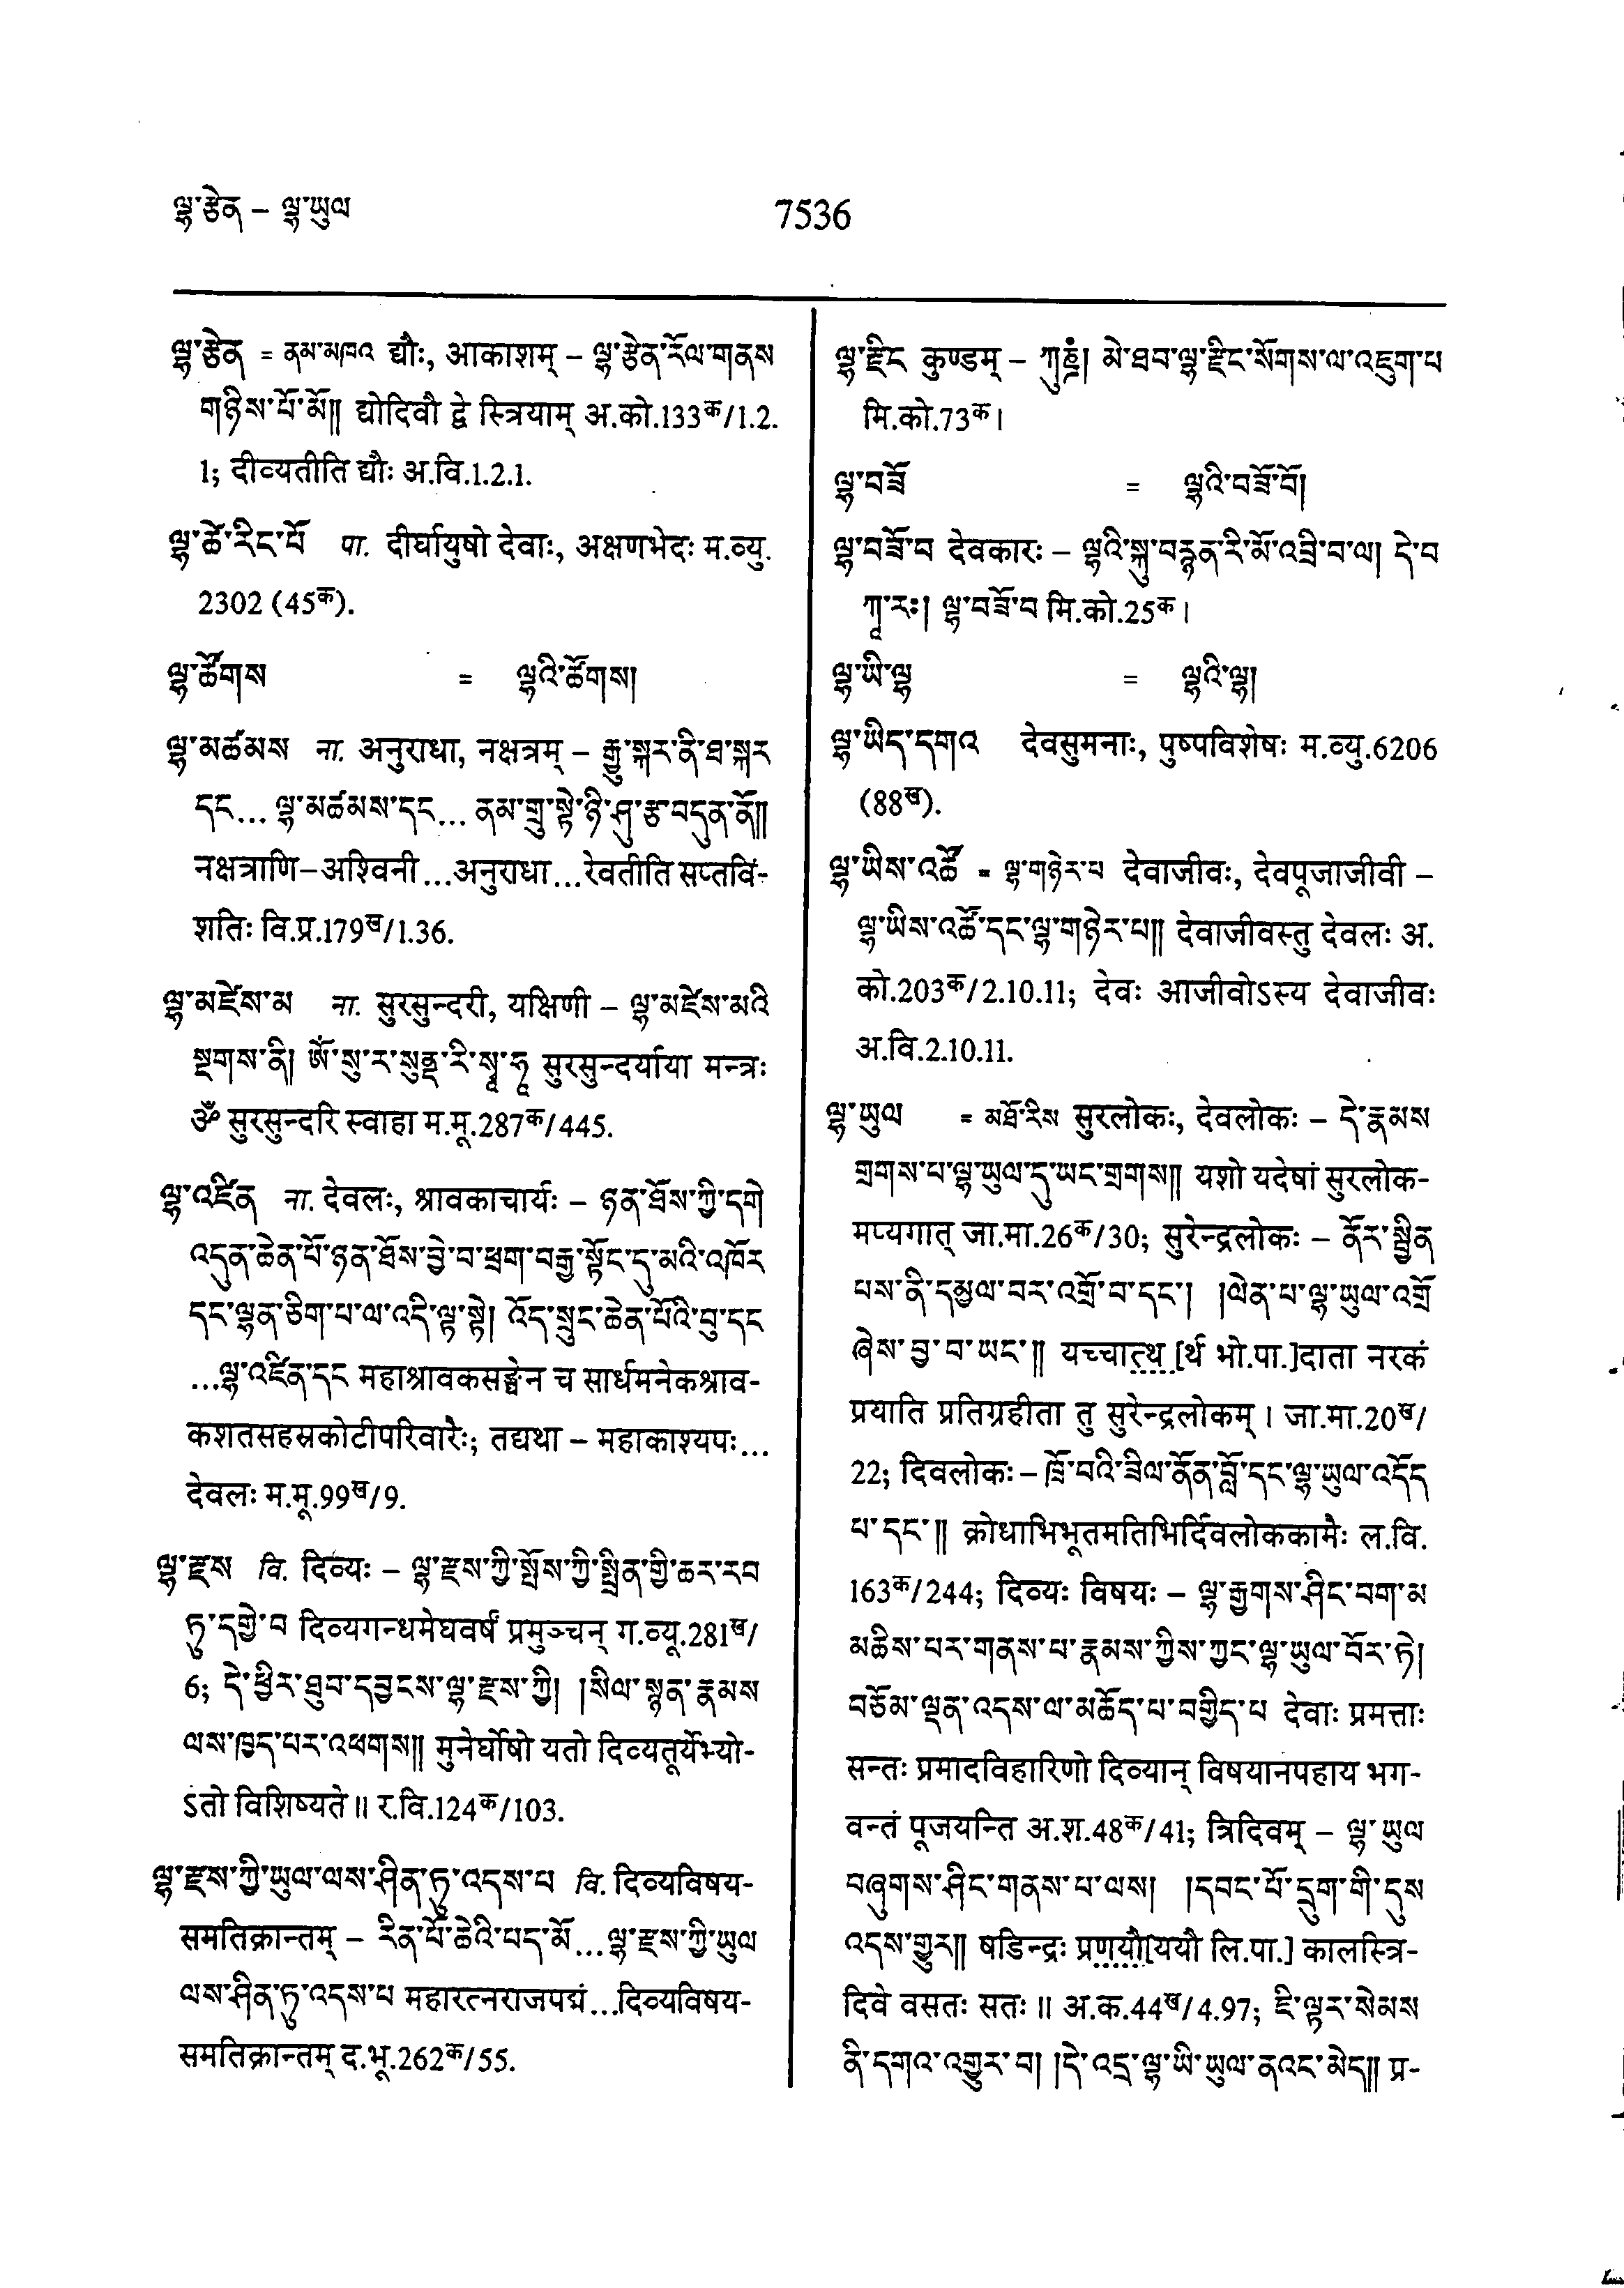 ལྷ་རྩེན – ལྷ་ཡུལ
7536
ལྷ་རྩེན = ནམ་མཁའ द्यौः, आकाशम् – ལྷ་རྩེན་རོལ་གནས
གཉིས་པོ་མོ།། द्योदिवौ द्वे स्त्रियाम् अ.को.133क/1.2.
1; दीव्यतीति द्यौः अ.वि.1.2.1.
ལྷ་ཚེ་རིང་པོ पा. दीर्घायुषो देवाः, अक्षणभेदः म.व्यु.
2302 (45क).
ལྷ་ཚོགས = ལྷའི་ཚོགས།
ལྷ་མཚམས ना. अनुराधा, नक्षत्रम् – རྒྱུ་སྐར་ནི་ཐ་སྐར
དང... ལྷ་མཚམས་དང... ནམ་གྲུ་སྟེ་ཉི་ཤུ་རྩ་བདུན་ནོ།།
नक्षत्राणि–अश्विनी...अनुराधा...रेवतीति सप्तविं-
शतिः वि.प्र.179ख/1.36.
ལྷ་མཛེས་མ ना. सुरसुन्दरी, यक्षिणी – ལྷ་མཛེས་མའི
སྔགས་ནི། ཨོཾ་སུ་ར་སུནྡ་རི་སྭཱ་ཧཱ सुरसुन्दर्याया मन्त्रः
ॐ सुरसुन्दरि स्वाहा म.मू.287क/445.
ལྷ་འཛིན ना. देवलः, श्रावकाचार्यः – ཉན་ཐོས་ཀྱི་དགེ
འདུན་ཆེན་པོ་ཉན་ཐོས་བྱེ་བ་ཕྲག་བརྒྱ་སྟོང་དུ་མའི་འཁོར
དང་ལྷན་ཅིག་པ་ལ་འདི་ལྟ་སྟེ། འོད་སྲུང་ཆེན་པོའི་བུ་དང
...ལྷ་འཛིན་དང महाश्रावकसङ्घेन च सार्धमनेकश्राव-
कशतसहस्रकोटीपरिवारैः; तद्यथा – महाकाश्यपः...
देवलः म.मू.99ख/9.
ལྷ་རྫས वि. दिव्यः – ལྷ་རྫས་ཀྱི་སྤོས་ཀྱི་སྤྲིན་གྱི་ཆར་རབ
ཏུ་དགྱེ་བ दिव्यगन्धमेघवर्षं प्रमुञ्चन् ग.व्यू.281ख/
6; དེ་ཕྱིར་ཐུབ་དབྱངས་ལྷ་རྫས་ཀྱི། །སིལ་སྙན་རྣམས
ལས་ཁྱད་པར་འཕགས།། मुनेर्घोषो यतो दिव्यतूर्येभ्यो-
ऽतो विशिष्यते॥ र.वि.124क/103.
ལྷ་རྫས་ཀྱི་ཡུལ་ལས་ཤིན་ཏུ་འདས་པ वि. दिव्यविषय-
समतिक्रान्तम् – རིན་པོ་ཆེའི་པད་མོ...ལྷ་རྫས་ཀྱི་ཡུལ
ལས་ཤིན་ཏུ་འདས་པ महारत्नराजपद्मं...दिव्यविषय-
समतिक्रान्तम् द.भू.262क/55.
ལྷ་རྫིང कुण्डम् – ཀུཎྜཾ། མེ་ཐབ་ལྷ་རྫིང་སོགས་ལ་འཇུག་པ
मि.को.73क।
ལྷ་བཟོ = ལྷའི་བཟོ་བོ།
ལྷ་བཟོ་བ देवकारः – ལྷའི་སྐུ་བརྙན་རི་མོ་འབྲི་བ་ལ། དེ་བ
ཀཱ་རཿ། ལྷ་བཟོ་བ मि.को.25क।
ལྷ་ཡི་ལྷ = ལྷའི་ལྷ།
ལྷ་ཡིད་དགའ देवसुमनाः, पुष्पविशेषः म.व्यु.6206
(88ख).
ལྷ་ཡིས་འཚོ = ལྷ་གཉེར་པ देवाजीवः, देवपूजाजीवी –
ལྷ་ཡིས་འཚོ་དང་ལྷ་གཉེར་པ།། देवाजीवस्तु देवलः अ.
को.203क/2.10.11; देवः आजीवोऽस्य देवाजीवः
अ.वि.2.10.11.
ལྷ་ཡུལ = མཐོ་རིས सुरलोकः, देवलोकः – དེ་རྣམས
གྲགས་པ་ལྷ་ཡུལ་དུ་ཡང་གྲགས།། यशो यदेषां सुरलोक-
मप्यगात् जा.मा.26क/30; सुरेन्द्रलोकः – ནོར་སྦྱིན
པས་ནི་དམྱལ་བར་འགྲོ་བ་དང་། །ལེན་པ་ལྷ་ཡུལ་འགྲོ
ཞེས་བྱ་བ་ཡང་།། यच्चात्थ [र्थ भो.पा.]दाता नरकं
प्रयाति प्रतिग्रहीता तु सुरेन्द्रलोकम्। जा.मा.20ख/
22; दिवलोकः – ཁྲོ་བའི་ཟིལ་ནོན་བློ་དང་ལྷ་ཡུལ་འདོད
པ་དང་།། क्रोधाभिभूतमतिभिर्दिवलोककामैः ल.वि.
163क/244; दिव्यः विषयः – ལྷ་རྒྱགས་ཤིང་བག་མ
མཆིས་པར་གནས་པ་རྣམས་ཀྱིས་ཀྱང་ལྷ་ཡུལ་བོར་ཏེ།
བཅོམ་ལྡན་འདས་ལ་མཆོད་པ་བགྱིད་པ देवाः प्रमत्ताः
सन्तः प्रमादविहारिणो दिव्यान् विषयानपहाय भग-
वन्तं पूजयन्ति अ.श.48क/41; त्रिदिवम् – ལྷ་ཡུལ
བཞུགས་ཤིང་གནས་པ་ལས། །དབང་པོ་དྲུག་གི་དུས
འདས་གྱུར།། षडिन्द्रः प्रणयौ[ययौ लि.पा.] कालस्त्रि-
दिवे वसतः सतः॥ अ.क.44ख/4.97; ཇི་ལྟར་སེམས
ནི་དགའ་འགྱུར་བ། །དེ་འདྲ་ལྷ་ཡི་ཡུལ་ནའང་མེད།། प्र-